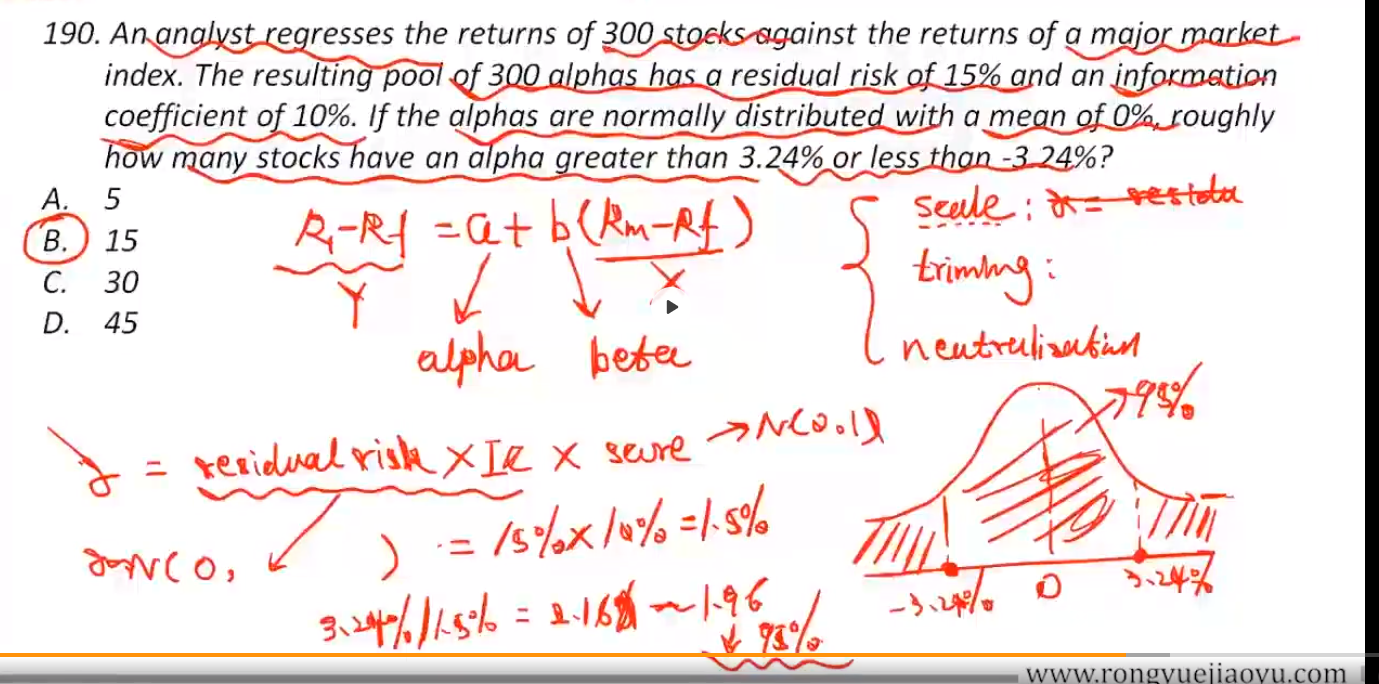 190. An analyst regresses the returns of 300 stocks against the returns of a major market
index. The resulting pool of 300 alphas has a residual risk of 15% and an information
coefficient of 10%. If the alphas are normally distributed with a mean of 0%, roughly
how many stocks have an alpha greater than 3.24% or less than -3.24%?
A. 5
B. 15
C. 30
D. 45
R₁-Rf = a + b(Rm-Rf)
Y
X
alpha beta
scale:
triming:
neutralization
= residual risk × IC × score → N(0.1)
95%
= 15% × 10% = 1.5%
N(0, )
3.24%/1.5% = 2.16 ~ 1.96
↓ 95%
-3.24% 0 3.24%
www.rongyuejiaoyu.com